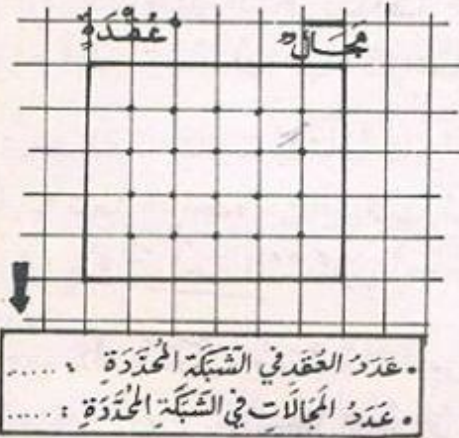 عُقْدَةٌ مَجَالٌ
• عَدَدُ العُقَدِ في الشَّبَكَةِ المُحَدَّدَةِ : .....
• عَدَدُ المَجَالَاتِ في الشَّبَكَةِ المُحَدَّدَةِ : .....